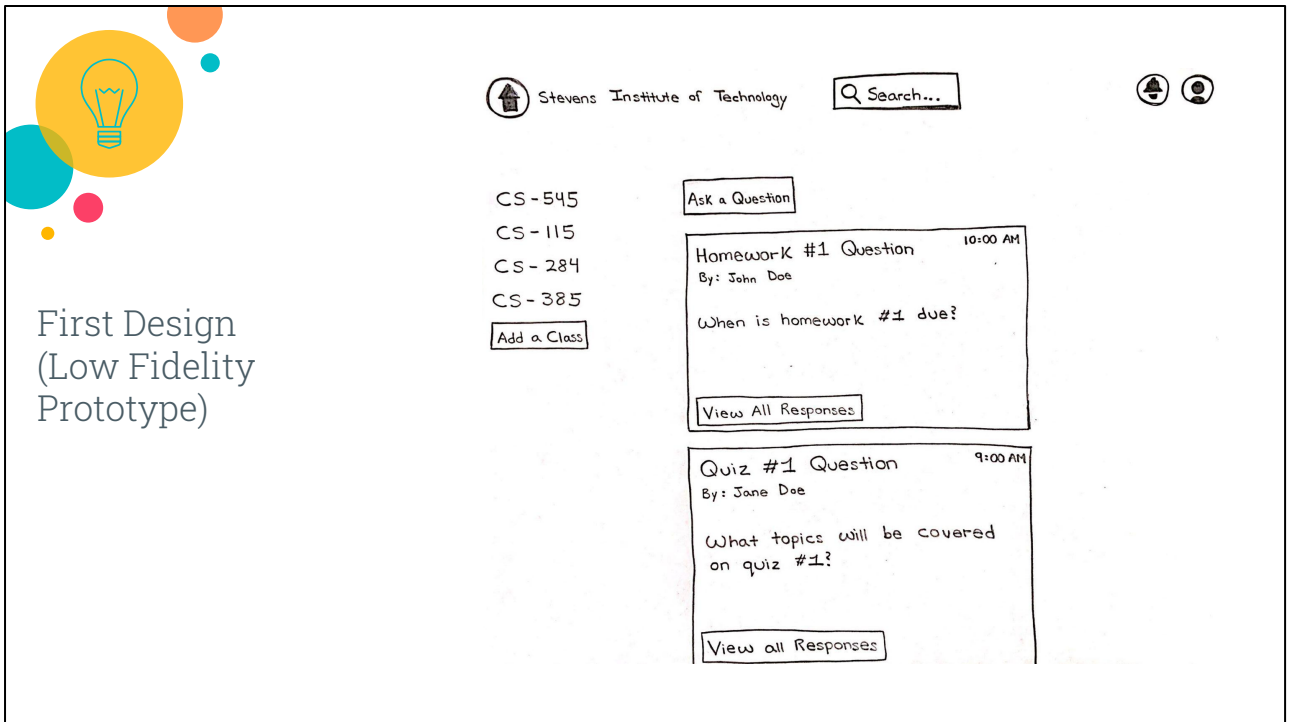 First Design
(Low Fidelity
Prototype)
Stevens Institute of Technology
Search...
CS-545
CS-115
CS-284
CS-385
Add a Class
Ask a Question
Homework #1 Question
10:00 AM
By: John Doe
When is homework #1 due?
View All Responses
Quiz #1 Question
9:00 AM
By: Jane Doe
What topics will be covered
on quiz #1?
View all Responses